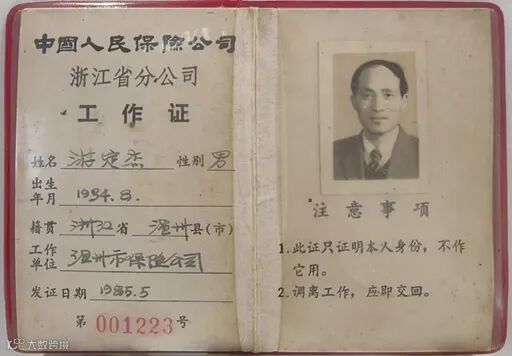 中國人民保險公司
浙江省分公司
工作证
姓名 游定杰 性别 男
出生年月 1934.8.
籍贯 浙江省 温州县(市)
工作单位 温州市保险公司
发证日期 1985.5
第 001223 号
注意事项
1.此证只证明本人身份，不作
它用。
2.调离工作，应即交回。
大数跨境